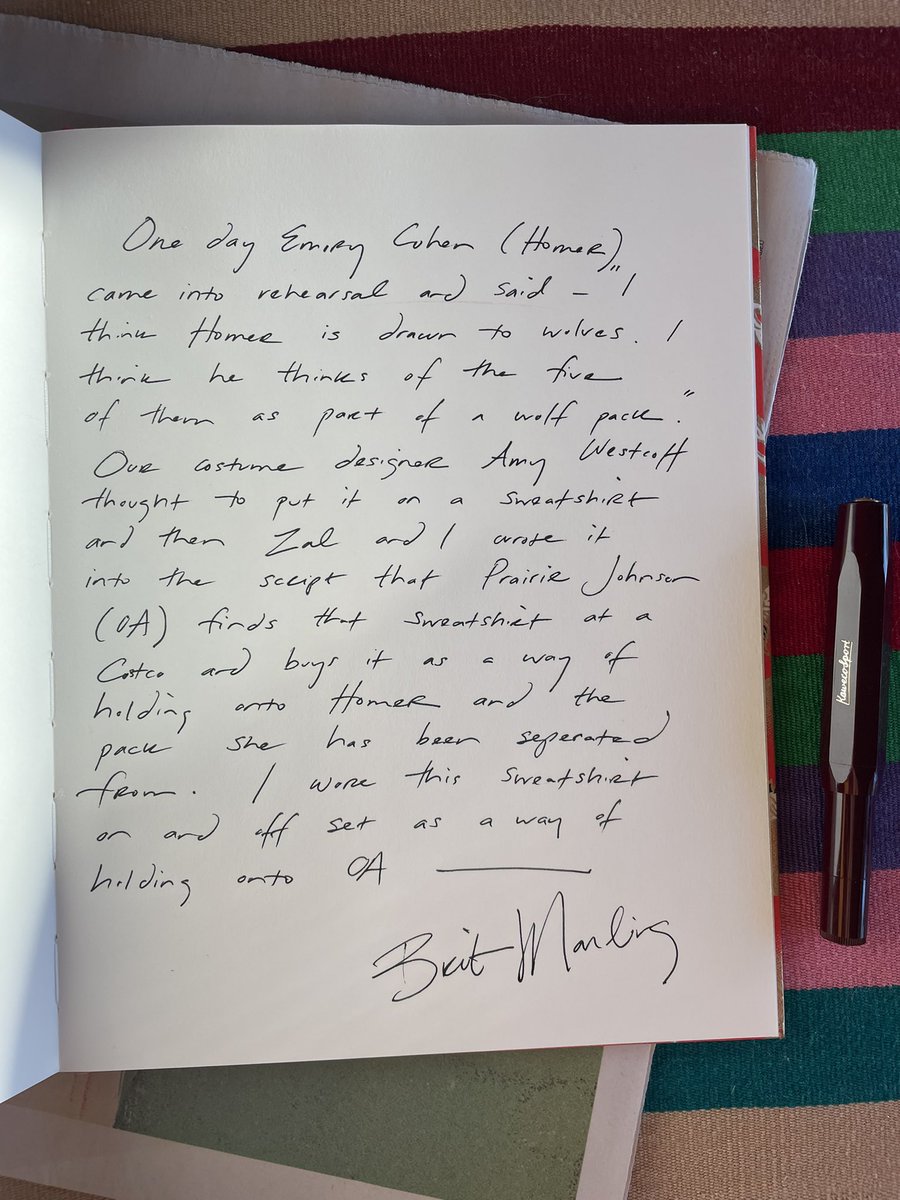 One day Emory Cohen (Homer)
came into rehearsal and said – "I
think Homer is drawn to wolves. I
think he thinks of the five
of them as part of a wolf pack."
Our costume designer Amy Westcott
thought to put it on a sweatshirt
and then Zal and I wrote it
into the script that Prairie Johnson
(OA) finds that sweatshirt at a
Costco and buys it as a way of
holding onto Homer and the
pack she has been seperated
from. I wore this sweatshirt
on and off set as a way of
holding onto OA ——
Brit Marling
KawecoSport